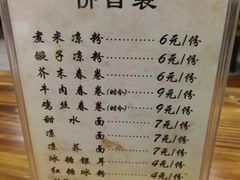 价目表
煮米凉粉 6元/份
旋子凉粉 6元/份
芥末春卷 6元/份
牛肉春卷(时令) 9元/份
鸡丝春卷(时令) 9元/份
甜水面 7元/份
凉面 7元/份
凉荞面 7元/份
冰糖银耳 4元/份
红糖 4元/份